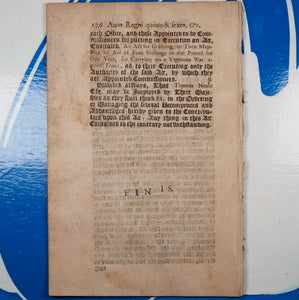 176 Anno Regni quinto & sexto, &c.
each Office, and those Appointed to be Com-
missioners for putting in Execution an Act,
Entituled, An Act for Granting to Their Maje-
sties an Aid of Four Shillings in the Pound for
One Year, for Carrying on a Vigorous War a-
gainst France, as to their Executing only the
Authority of the said Act, by which they
are Appointed Commissioners.
Provided always, That Thomas Neale
Esq; may be Imployed by Their Maje-
sties as they shall think fit, in the Ordering
or Managing the several Recompences and
Advantages hereby given to the Contribu-
tors upon this Act; Any thing in this Act
Contained to the contrary notwithstanding.
FINIS.